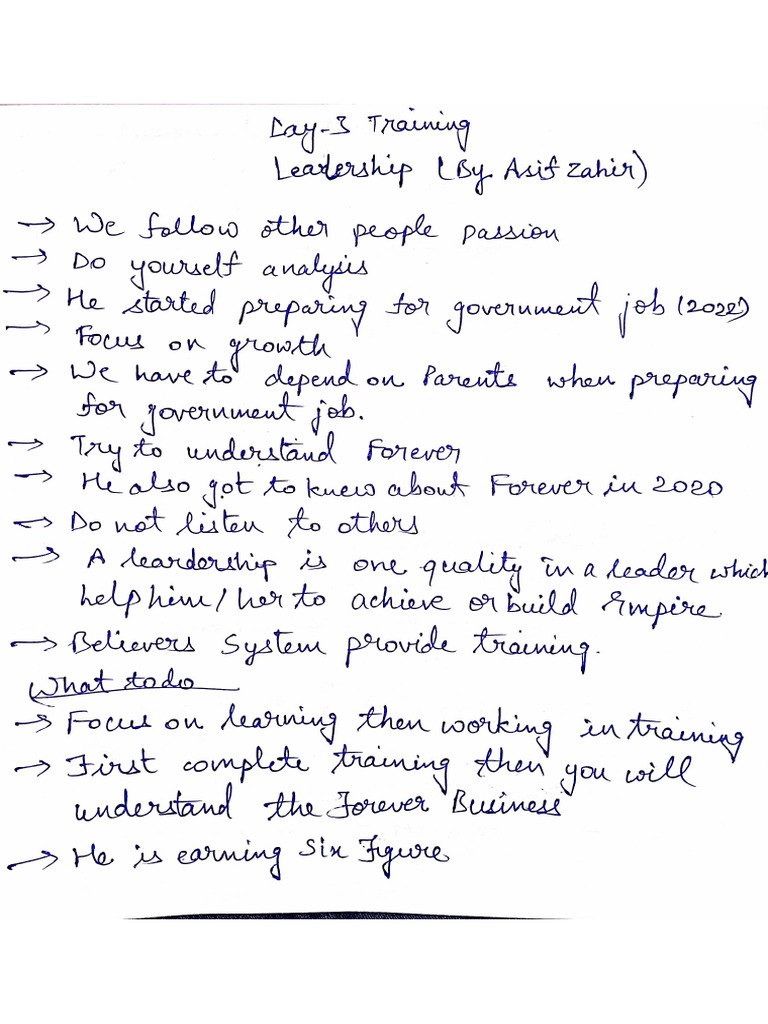 Day-3 Training
Leadership (By Asif Zahir)
→ We follow other people passion
→ Do yourself analysis
→ He started preparing for government job (2022)
→ Focus on growth
→ We have to depend on Parents when preparing
for government job.
→ Try to understand Forever
→ He also got to knew about Forever in 2020
→ Do not listen to others
→ A leardership is one quality in a leader which
help him/her to achieve or build Empire.
→ Believers System provide training.
What to do
→ Focus on learning then working in training
→ First complete training then you will
understand the Forever Business
→ He is earning Six Figure